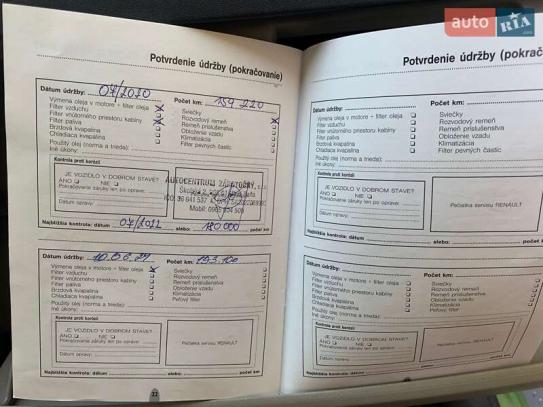 auto RIA.com
Potvrdenie údržby (pokračovanie)
Dátum údržby: 07/2020 Počet km: 154 220
Výmena oleja v motore + filter oleja
Filter vzduchu
Filter vnútorného priestoru kabíny
Filter paliva
Brzdová kvapalina
Chladiaca kvapalina
Sviečky
Rozvodový remeň
Remeň príslušenstva
Obloženie vzadu
Klimatizácia
Filter pevných častíc
Použitý olej (norma a trieda):
Iné úkony:
Kontrola proti korózii
JE VOZIDLO V DOBROM STAVE?
ÁNO NIE
Pokračovanie záruky len po oprave:
Dátum opravy:
AUTOCENTRUM
Najbližšia kontrola: dátum 07/2022 alebo: 180 000 počet km
Dátum údržby: Počet km: 193 100
Výmena oleja v motore + filter oleja
Filter vzduchu
Filter vnútorného priestoru kabíny
Filter paliva
Brzdová kvapalina
Chladiaca kvapalina
Sviečky
Rozvodový remeň
Remeň príslušenstva
Obloženie vzadu
Klimatizácia
Peľový filter
Použitý olej (norma a trieda):
Iné úkony:
Kontrola proti korózii
JE VOZIDLO V DOBROM STAVE?
ÁNO NIE
Pokračovanie záruky len po oprave:
Dátum opravy:
Pečiatka servisu RENAULT
Najbližšia kontrola: dátum alebo: počet km
22
Potvrdenie údržby (pokrač
Dátum údržby: Počet km:
Výmena oleja v motore + filter oleja
Filter vzduchu
Filter vnútorného priestoru kabíny
Filter paliva
Brzdová kvapalina
Chladiaca kvapalina
Sviečky
Rozvodový remeň
Remeň príslušenstva
Obloženie vzadu
Klimatizácia
Filter pevných častíc
Použitý olej (norma a trieda):
Iné úkony:
Kontrola proti korózii
JE VOZIDLO V DOBROM STAVE?
ÁNO NIE
Pokračovanie záruky len po oprave:
Dátum opravy:
Pečiatka servisu RENAULT
Najbližšia kontrola: dátum alebo:
Dátum údržby: Počet km:
Výmena oleja v motore + filter oleja
Filter vzduchu
Filter vnútorného priestoru kabíny
Filter paliva
Brzdová kvapalina
Chladiaca kvapalina
Sviečky
Rozvodový remeň
Remeň príslušenstva
Obloženie vzadu
Klimatizácia
Peľový filter
Použitý olej (norma a trieda):
Iné úkony:
Kontrola proti korózii
JE VOZIDLO V DOBROM STAVE?
ÁNO NIE
Pokračovanie záruky len po oprave:
Dátum opravy:
Pečiatka servisu RENAULT
Najbližšia kontrola: dátum alebo: počet km